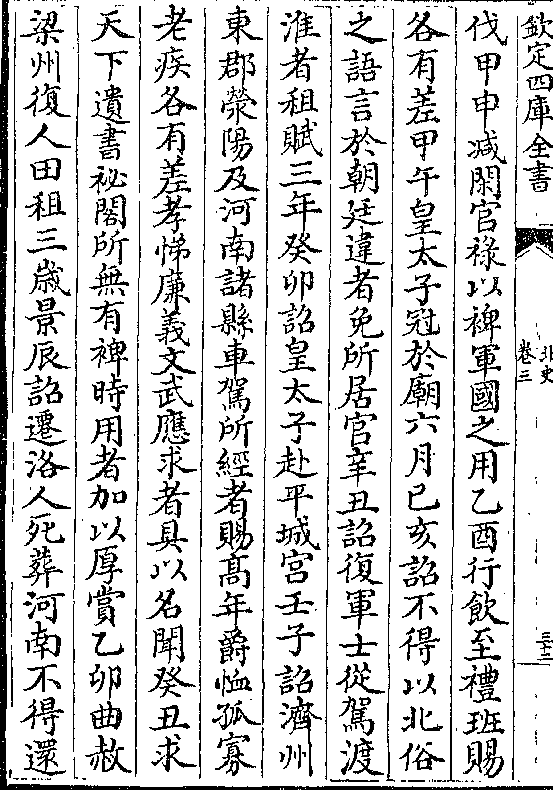 欽定四庫全書
北史
卷三
三十二
伐甲申減閑官祿以裨軍國之用乙酉行飲至禮班賜
各有差甲午皇太子冠於廟六月已亥詔不得以北俗
之語言於朝廷違者免所居官辛丑詔復軍士從駕渡
淮者租賦三年癸卯詔皇太子赴平城宮壬子詔濟州
東郡滎陽及河南諸縣車駕所經者賜高年爵恤孤寡
老疾各有差孝悌廉義文武應求者具以名聞癸丑求
天下遺書祕閣所無有裨時用者加以厚賞乙卯曲赦
梁州復人田租三歲景辰詔遷洛人死葬河南不得還